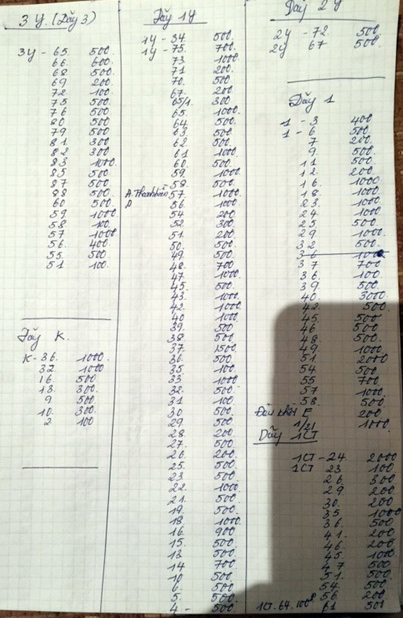 3Y (Dãy 3)
3Y - 65 500
66. 600
68 500
69 200
72 100
75 500
76 500
80 500
79 500
81 300
82 300
83 1000
85 500
87 500
88 500
60 500
59 1000
58 100
57 1000
56 400
55 500
51 100
Dãy K.
K - 36. 1000
32 1000
16 500
13 300
9 500
10 300
2 100
Dãy 1Y
1Y - 34 500
1Y - 75. 700
73 1000
71 200
70. 500
67. 200
65/1. 300
65 1000
64 500
63 500
62 500
61 1000
60. 500
59 1000
58 500
57 1000
56 1000
54 200
52 300
51 200
50. 500
49 500
48 700
47 1000
45 500
43. 1000
42. 1000
40 1000
39 500
38 500
37. 1500
36. 500
35 100
33 1000
32. 500
31 100
30 500
29 500
28 200
27. 500
26. 200
25. 500
23 500
22. 1000
21. 500
19. 500
18. 1000
16. 900
15. 500
13. 500
14 700
10. 500
6. 500
5. 500
4 - 500
Dãy 2Y
2Y - 72 500
2Y 67 500
Dãy 1
1 - 3 400
1 - 6 500
7 200
9 500
11 500
12 200
16. 1000
18 1000
23. 1000
24 1000
25 500
29 1000
32 500
36 1000
37 700
36. 100
39 500
40. 3000
42 500
45 500
46 500
48 500
49 1000
51 2000
54 500
55 700
57 1000
58 500
200
1/21 1000
Dãy 1CT
1CT - 24 2000
1CT 23 100
26 300
29 200
30. 200
35 1000
36. 500
41. 200
46. 200
45. 1000
47 500
51. 500
54 500
56 200
1CT. 64. 100
61 500